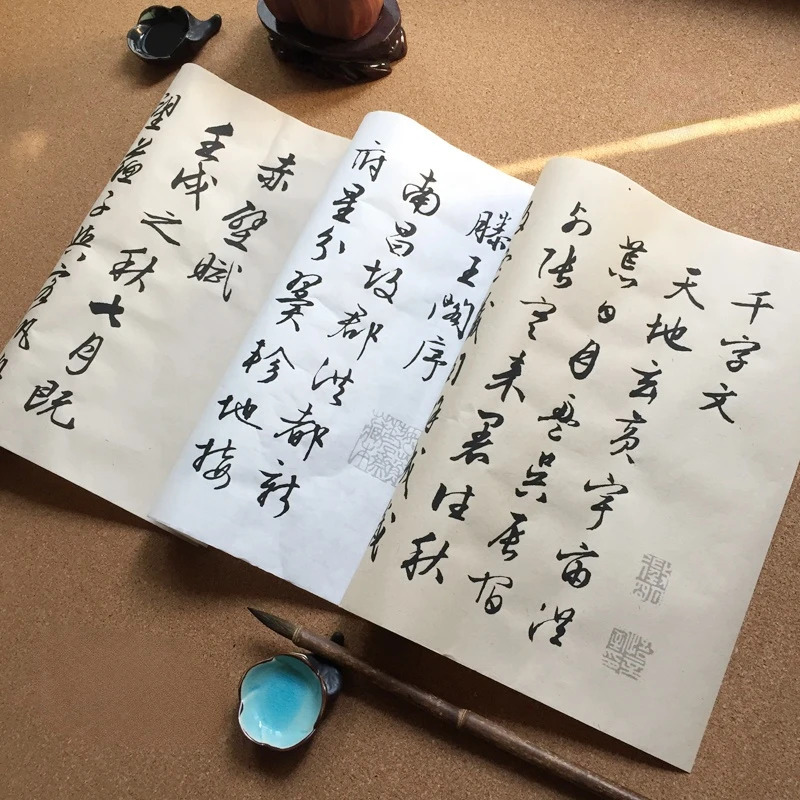 千字文
天地玄黄宇宙洪
荒日月盈昃辰宿
列张寒来暑往秋
滕王阁序
南昌故郡洪都新
府星分翼轸地接
赤壁赋
壬戌之秋七月既
望蘇子與客